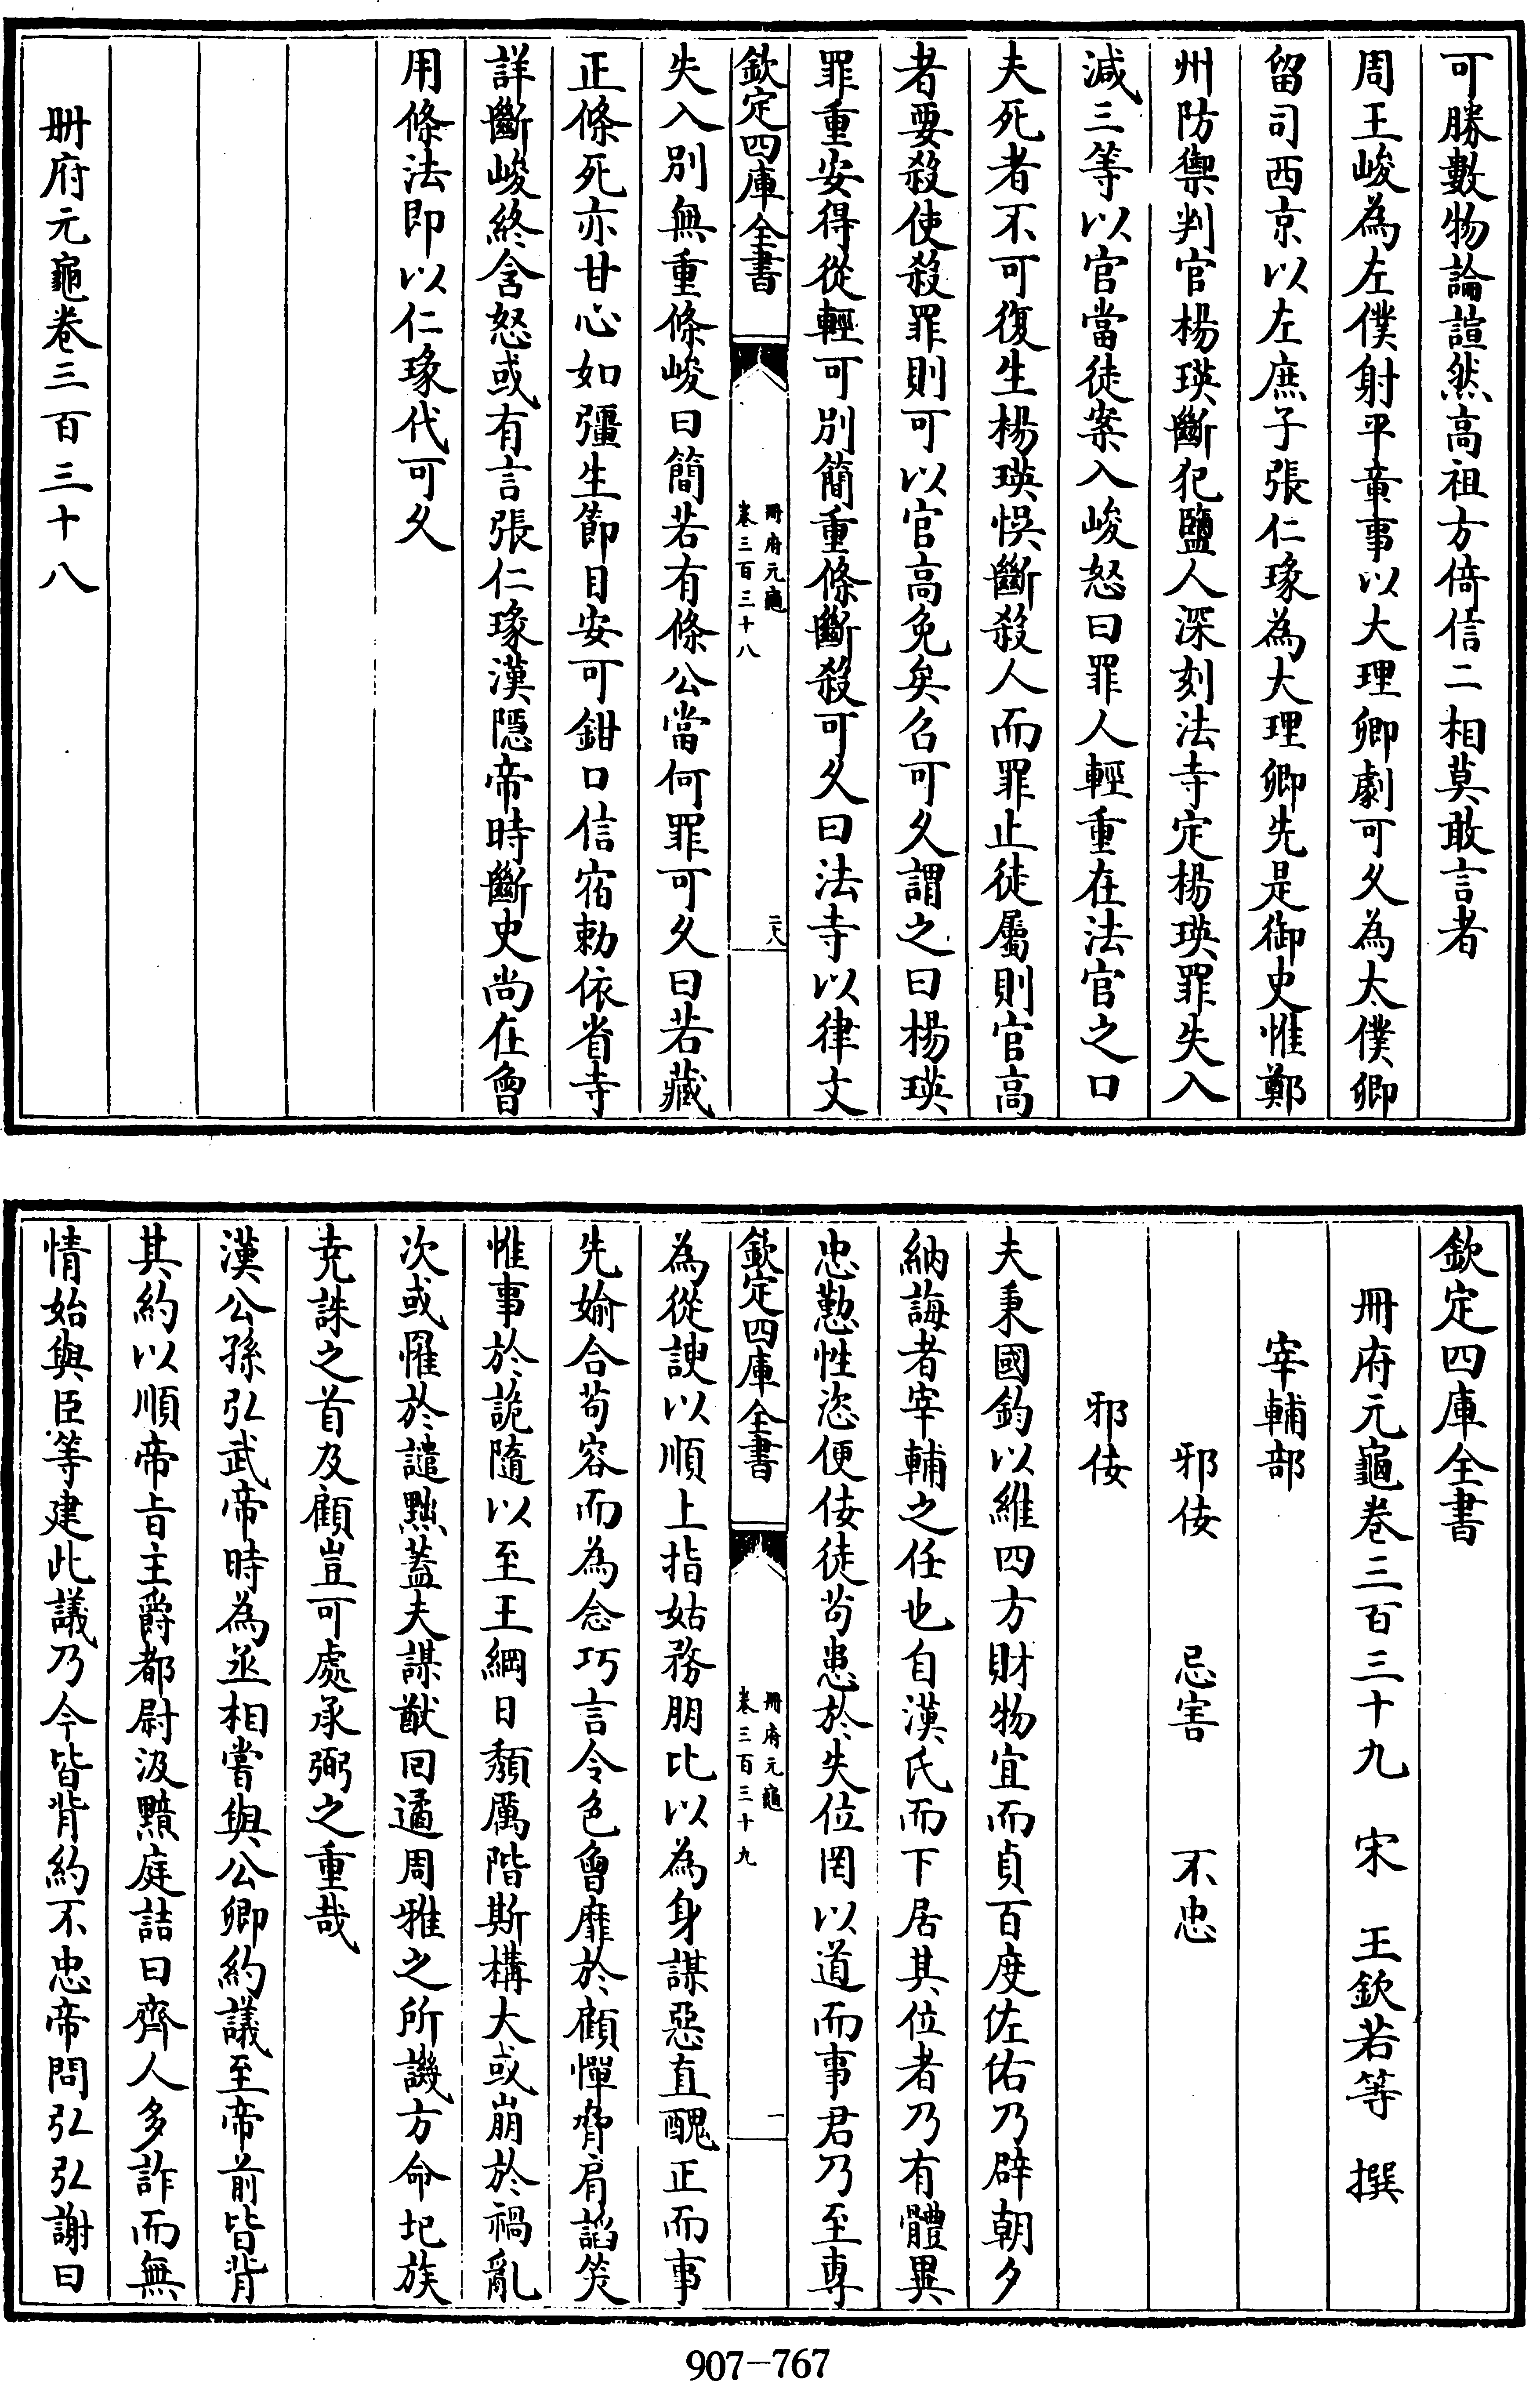 可勝數物論諠然高祖方倚信二相莫敢言者
周王峻為左僕射平章事以大理卿劇可久為太僕卿
留司西京以左庶子張仁瑑為大理卿先是御史惟鄭
州防禦判官楊瑛斷犯鹽人深刻法寺定楊瑛罪失入
減三等以官當徒案入峻怒曰罪人輕重在法官之口
夫死者不可復生楊瑛悞斷殺人而罪止徒屬則官高
者要殺使殺罪則可以官高免矣召可久謂之曰楊瑛
罪重安得從輕可別簡重條斷殺可久曰法寺以律文
欽定四庫全書
冊府元龜
卷三百三十八
二十八
失入別無重條峻曰簡若有條公當何罪可久曰若藏
正條死亦甘心如彊生節目安可鉗口信宿勅依省寺
詳斷峻終含怒或有言張仁瑑漢隱帝時斷史尚在會
用條法即以仁瑑代可久
冊府元龜卷三百三十八
欽定四庫全書
冊府元龜卷三百三十九 宋 王欽若等 撰
宰輔部
邪佞 忌害 不忠
邪佞
夫秉國鈞以維四方財物宜而貞百度佐佑乃辟朝夕
納誨者宰輔之任也自漢氏而下居其位者乃有體異
忠懃性恣便佞徒苟患於失位罔以道而事君乃至專
欽定四庫全書
冊府元龜
卷三百三十九
一
為從諛以順上指姑務朋比以為身謀惡直醜正而事
先婾合苟容而為念巧言令色會靡於顧憚脅肩諂笑
惟事於詭隨以至王綱日頹厲階斯構大或崩於禍亂
次或罹於譴黜蓋夫謀猷回遹周雅之所譏方命圮族
堯誅之首及顧豈可處承弼之重哉
漢公孫弘武帝時為丞相嘗與公卿約議至帝前皆背
其約以順帝旨主爵都尉汲黯庭詰曰齊人多詐而無
情始與臣等建此議乃今皆背約不忠帝問弘弘謝曰
907-767